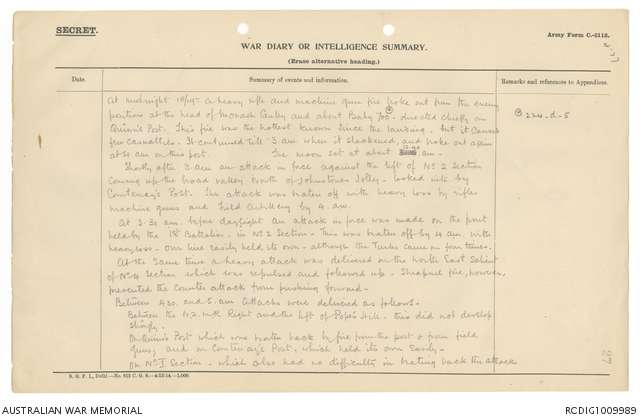 SECRET.
Army Form C.-2118.
WAR DIARY OR INTELLIGENCE SUMMARY.
(Erase alternative heading.)
Date.
Summary of events and information.
Remarks and references to Appendices.
At midnight 18/19th a heavy rifle and machine gun fire broke out from the enemy
position at the head of Monash Gully and about Baby 700 - directed chiefly on
Quinn's Post. This fire was the hottest known since the landing. but it caused
few casualties. It continued till 3 am when it slackened, and broke out again
at 4 am on this post. The moon set at about am.
224.d.5
Shortly after 3 am an attack in force against the left of No 2 Section
coming up the broad valley North of Johnstones Jolley - looked into by
Courtenay's Post. The attack was beaten off with heavy loss by rifles
machine guns and Field Artillery by 4 am.
At 3.30 am before daylight an attack in force was made on the front
held by the 1st Battalion in No 2 Section - This was beaten off by 4 am with
heavy loss - Our line easily held its own - although the Turks came on four times.
At the same time a heavy attack was delivered on the North East Salient
of No 4 Section which was repulsed and followed up. Shrapnel fire, however,
prevented the counter attack from pushing forward -
Between 4.30 and 5 am attacks were delivered as follows -
Between the N.Z. MR Right and the left of Pope's Hill - this did not develop
strongly.
On Quinn's Post which were beaten back by fire from the post & from field
guns; and on Courtenay's Post, which held its own easily -
On No I Section - which also had no difficulty in beating back the attack
S. G. P. I., Delhi
AUSTRALIAN WAR MEMORIAL
RCDIG1009989